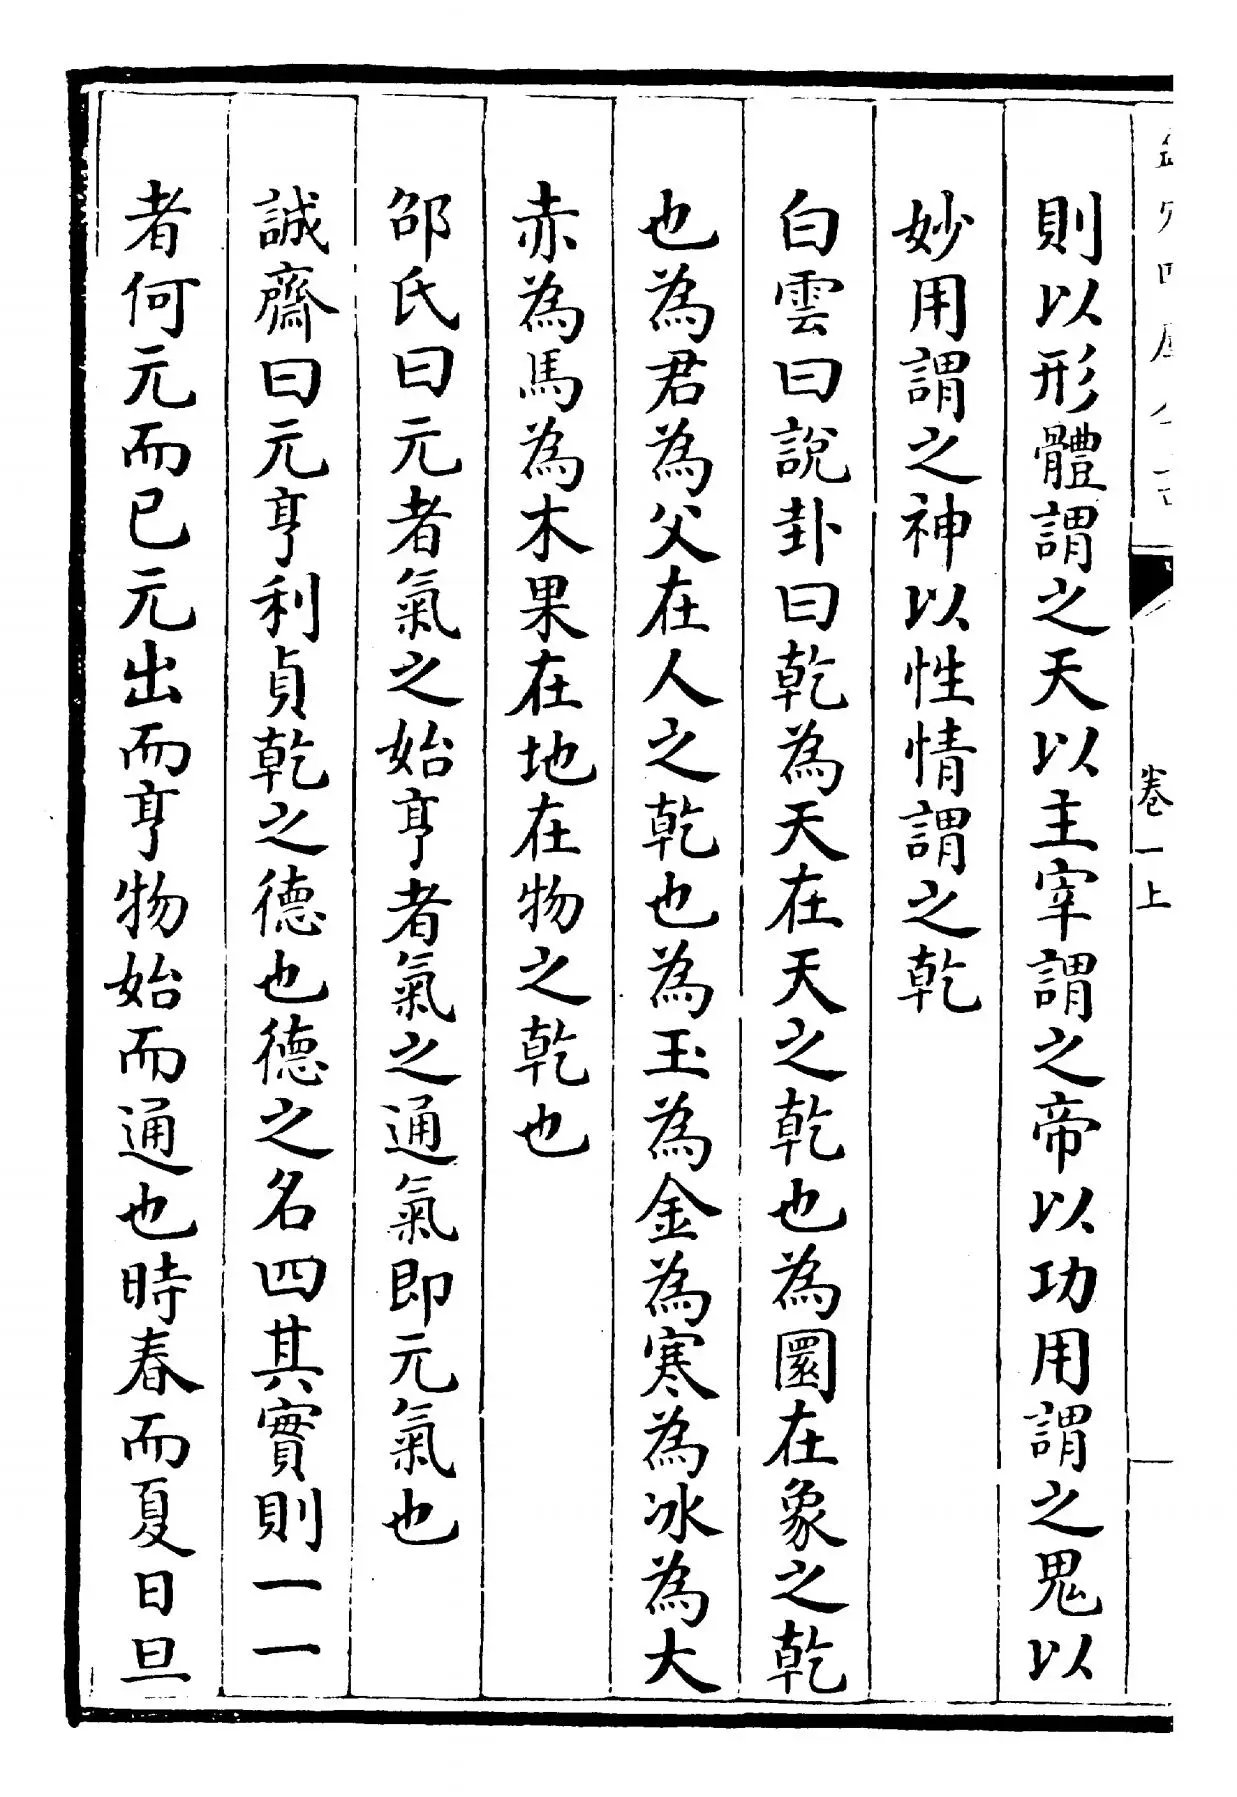 卷一上
則以形體謂之天以主宰謂之帝以功用謂之鬼以
妙用謂之神以性情謂之乾
白雲曰說卦曰乾為天在天之乾也為圜在象之乾
也為君為父在人之乾也為玉為金為寒為冰為大
赤為馬為木果在地在物之乾也
邵氏曰元者氣之始亨者氣之通氣即元氣也
誠齋曰元亨利貞乾之德也德之名四其實則一一
者何元而已元出而亨物始而通也時春而夏日旦